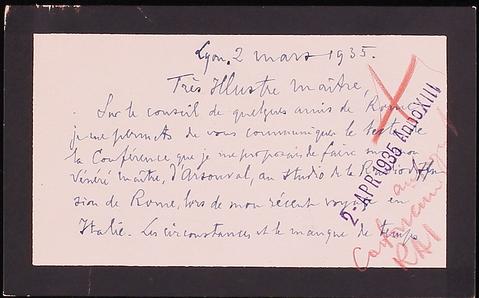 Lyon, 2 mars 1935.
Très Illustre Maître,
Sur le conseil de quelques amis de Rome
je me permets de vous communiquer le texte de
la Conférence que je me proposais de faire sur mon
Vénéré maître, d'Arsonval, au Studio de la Radio diffu
sion de Rome, lors de mon récent voyage en
Italie. Les circonstances et le manque de temps
2 - APR 1935 Anno XIII